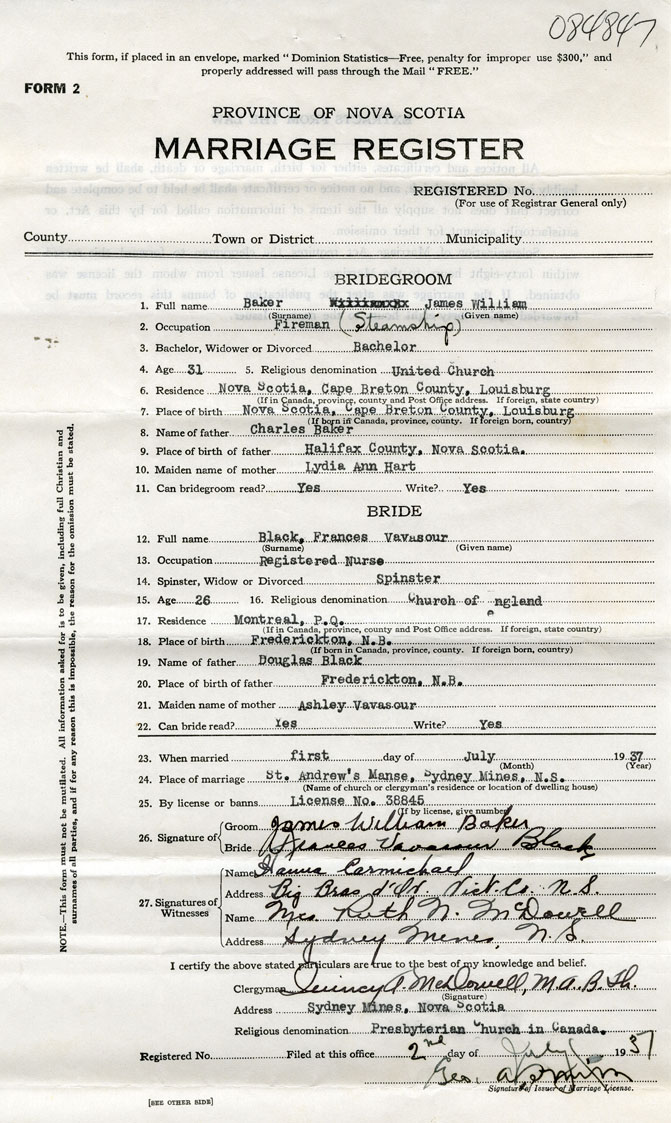 084847
This form, if placed in an envelope, marked "Dominion Statistics—Free, penalty for improper use $300," and
properly addressed will pass through the Mail "FREE."
FORM 2
PROVINCE OF NOVA SCOTIA
MARRIAGE REGISTER
REGISTERED No.
(For use of Registrar General only)
County Town or District Municipality
BRIDEGROOM
1. Full name Baker James William
(Surname) (Given name)
2. Occupation Fireman (Steamship)
3. Bachelor, Widower or Divorced Bachelor
4. Age 31 5. Religious denomination United Church
6. Residence Nova Scotia, Cape Breton County, Louisburg
(If in Canada, province, county and Post Office address. If foreign, state country)
7. Place of birth Nova Scotia, Cape Breton County, Louisburg
(If born in Canada, province, county. If foreign born, country)
8. Name of father Charles Baker
9. Place of birth of father Halifax County, Nova Scotia.
10. Maiden name of mother Lydia Ann Hart
11. Can bridegroom read? Yes Write? Yes
BRIDE
12. Full name Black, Frances Vavasour
(Surname) (Given name)
13. Occupation Registered Nurse
14. Spinster, Widow or Divorced Spinster
15. Age 26 16. Religious denomination Church of England
17. Residence Montreal, P.Q.
(If in Canada, province, county and Post Office address. If foreign, state country)
18. Place of birth Frederickton, N.B.
(If born in Canada, province, county. If foreign born, country)
19. Name of father Douglas Black
20. Place of birth of father Frederickton, N.B.
21. Maiden name of mother Ashley Vavasour
22. Can bride read? Yes Write? Yes
23. When married first day of July 1937
(Month) (Year)
24. Place of marriage St. Andrew's Manse, Sydney Mines, N.S.
(Name of church or clergyman's residence or location of dwelling house)
25. By license or banns License No. 38845
(If by license, give number)
26. Signature of Groom James William Baker
Bride Frances Vavasour Black
27. Signatures of Witnesses Name Carmichael
Address Big Bras d'Or Vict. Co. N.S.
Name Mrs. Ruth N. McDowell
Address Sydney Mines, N.S.
I certify the above stated particulars are true to the best of my knowledge and belief.
Clergyman Quincy A. McDowell, M.A. B.Th.
(Signature)
Address Sydney Mines, Nova Scotia
Religious denomination Presbyterian Church in Canada.
Registered No. Filed at this office 2nd day of July 1937
Geo.
Signature of Issuer of Marriage License.
[SEE OTHER SIDE]
NOTE.—This form must not be mutilated. All information asked for is to be given, including full Christian and
surnames of all parties, and if for any reason this is impossible, the reason for the omission must be stated.